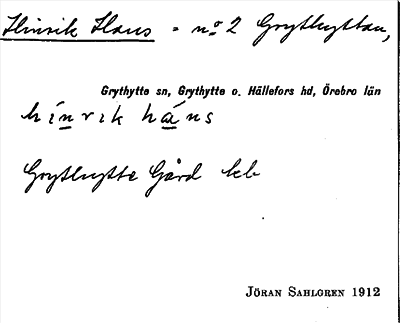 Hinrik Hans = nº 2 Grythyttan,
Grythytte sn, Grythytte o. Hällefors hd, Örebro län
hínrik háns
Grythytte Gård lzb
JÖRAN SAHLGREN 1912